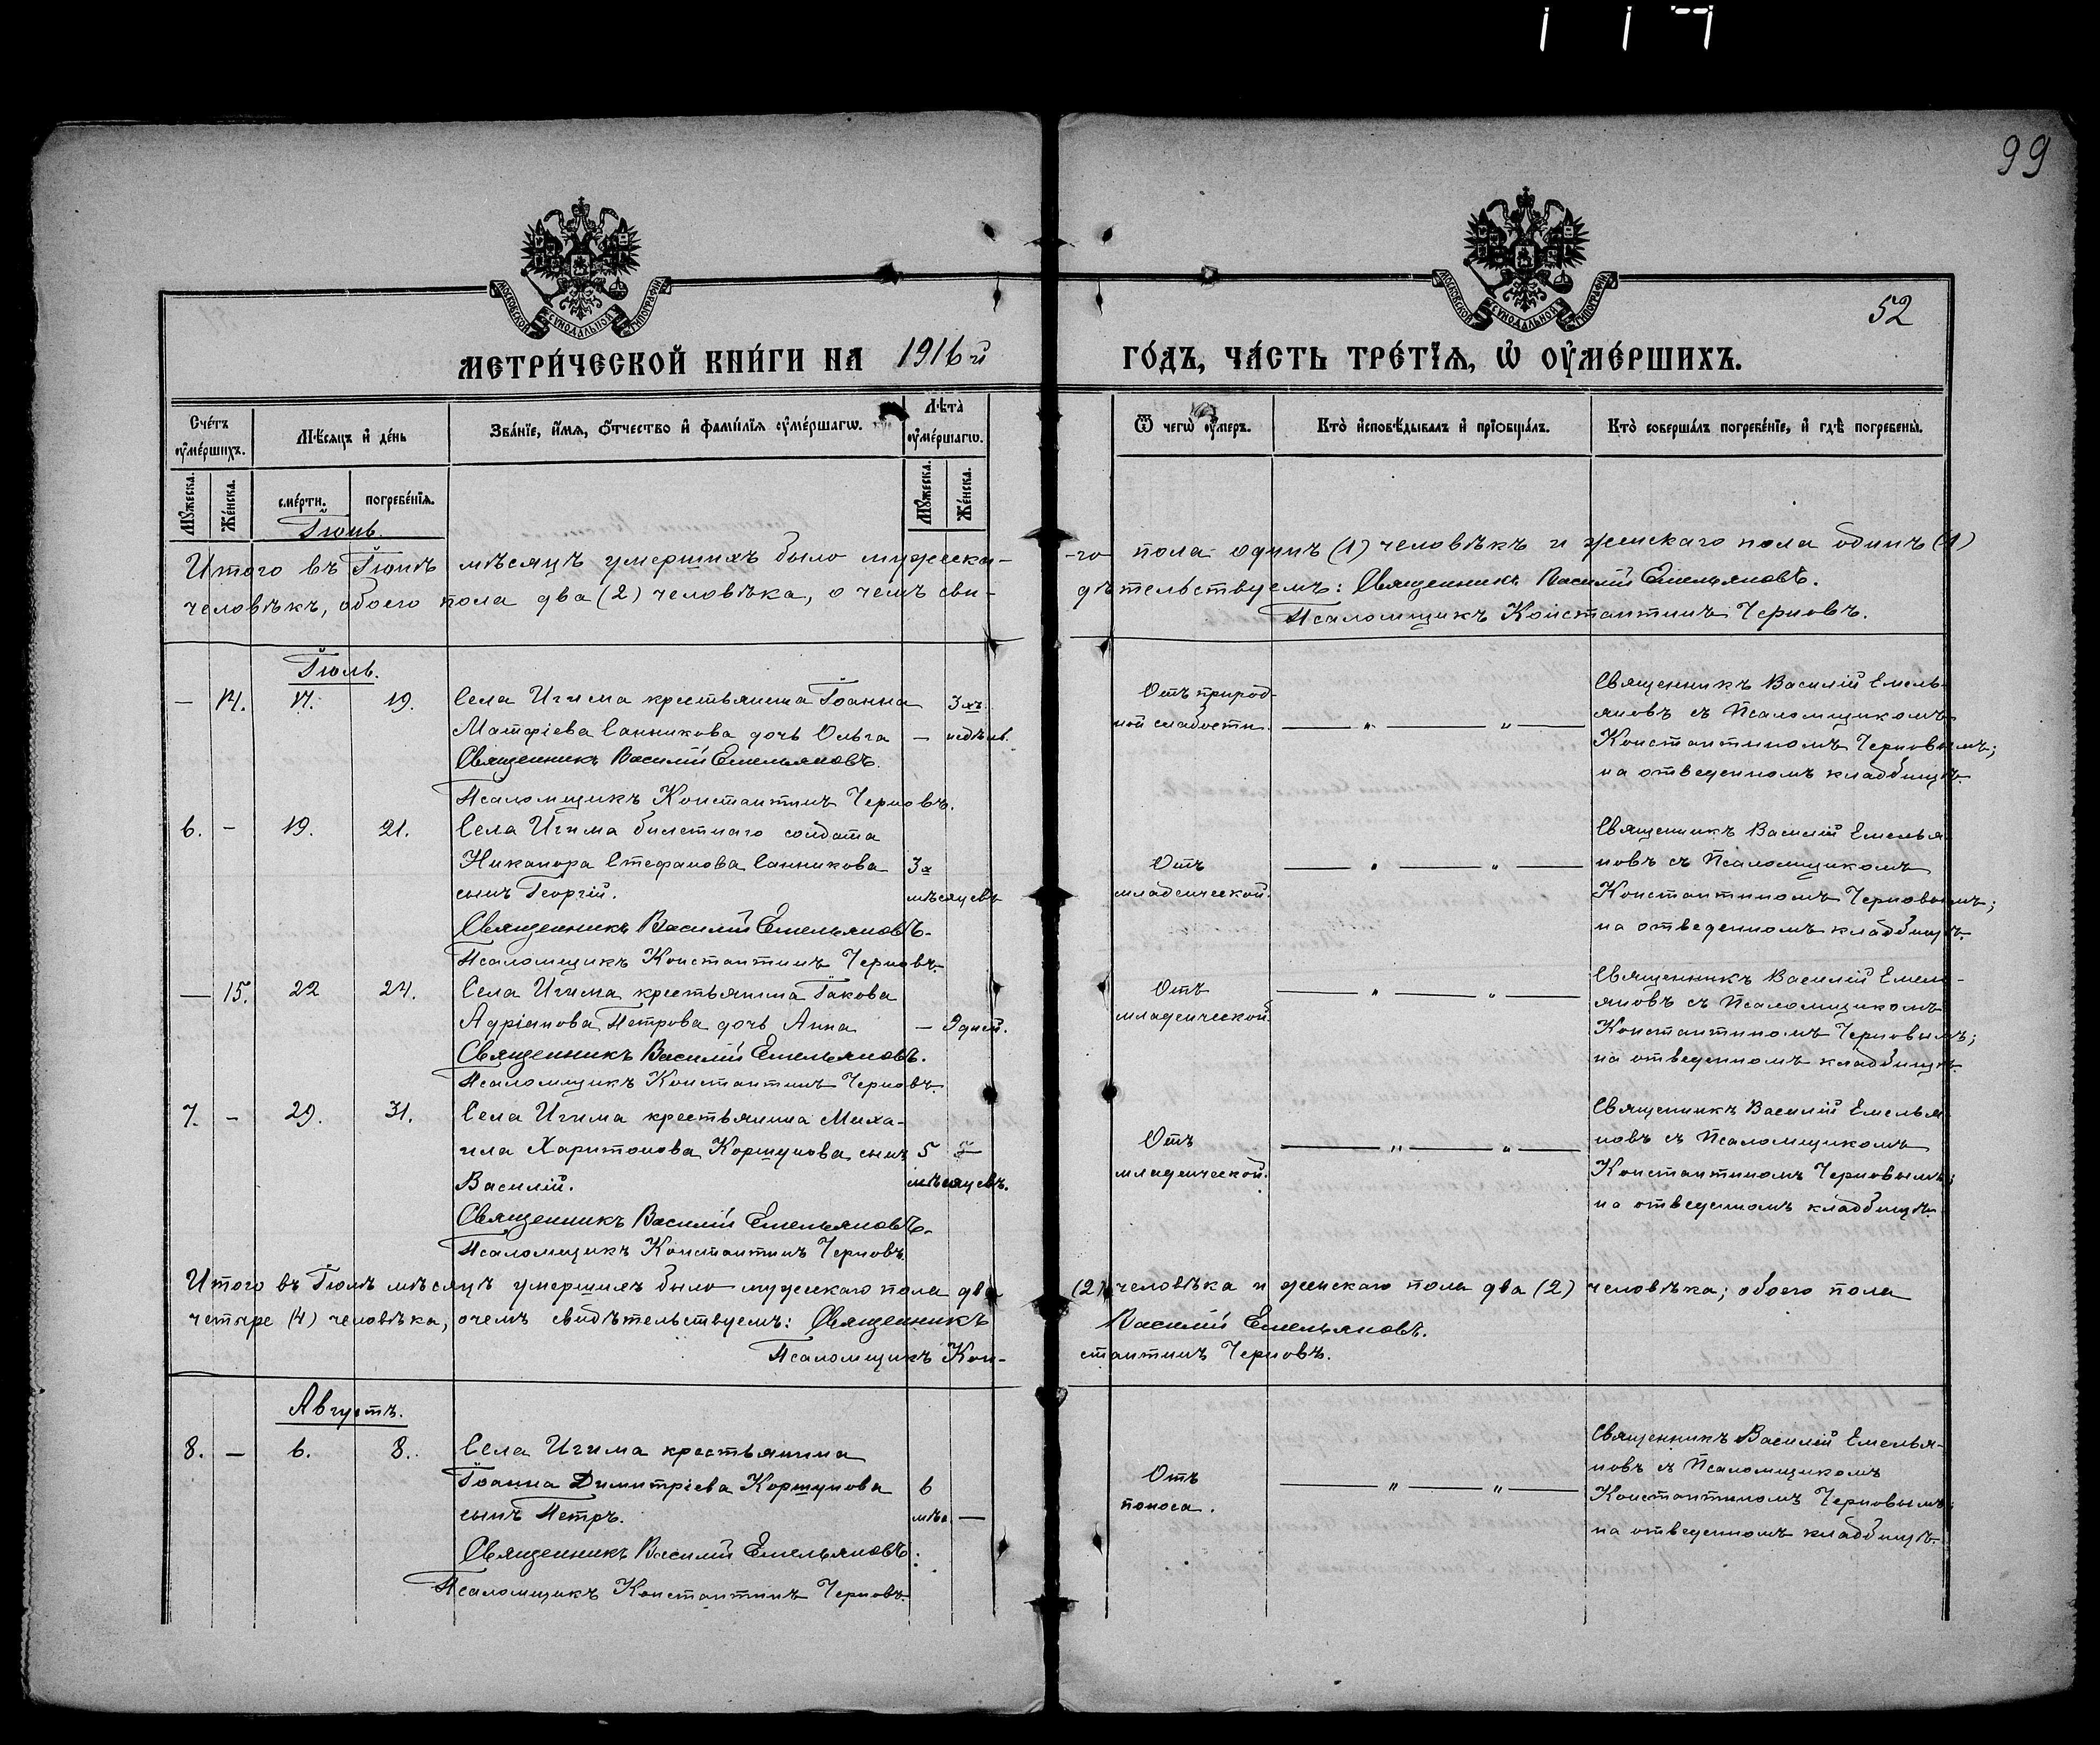 99
МОСКОВСКОЙ СѴНОДАЛЬНОЙ ТИПОГРАФІИ
МОСКОВСКОЙ СѴНОДАЛЬНОЙ ТИПОГРАФІИ
52
МЕТРИ́ЧЕСКОЙ КНИ́ГИ НА 1916й ГО́ДЪ, ЧА́СТЬ ТРЕ́ТІЯ, Ѡ ОУ҆МЕ́РШИХЪ.
Сче́тъ оу҆ме́ршихъ.
Мѣ́сяцъ и҆ де́нь
Зва́ніе, и҆́мя, ѻ҆́тчество и҆ фами́лія оу҆ме́ршагѡ.
Лѣта̀ оу҆ме́ршагѡ.
Ѿ чегѡ̀ оу҆́меръ.
Кто̀ и҆сповѣ́дывалъ и҆ пріѡбща́лъ.
Кто̀ соверша́лъ погребе́ніе, и҆ гдѣ̀ погребены̀.
Мꙋ́жеска.
Же́нска.
сме́рти.
погребе́нія.
Мꙋ́жеска.
Же́нска.
Іюнь.
Итого въ Іюнѣ мѣсяцѣ умершихъ было мужска-
-го пола одинъ (1) человѣкъ и женскаго пола одинъ (1)
человѣкъ, обоего пола два (2) человѣка, о чемъ сви-
дѣтельствуемъ: Священникъ Василій Емельяновъ.
Псаломщикъ Константинъ Черновъ.
Іюль.
— 14. 17. 19. Села Игима крестьянина Іоанна 3хъ
Матфіева Санникова дочь Ольга — недѣль.
Священникъ Василій Емельяновъ.
Псаломщикъ Константинъ Черновъ.
Отъ природ-
ной слабости. — „ — „ —
Священникъ Василій Емель-
яновъ съ Псаломщикомъ
Константиномъ Черновымъ;
на отведенномъ кладбищѣ.
6. — 19. 21. Села Игима билетнаго солдата
Никанора Стефанова Санникова 3х
сынъ Георгій. мѣсяцевъ
Священникъ Василій Емельяновъ.
Псаломщикъ Константинъ Черновъ.
Отъ
младенческой. — „ — „ —
Священникъ Василій Емелья-
новъ съ Псаломщикомъ
Константиномъ Черновымъ;
на отведенномъ кладбищѣ.
— 15. 22 24. Села Игима крестьянина Іакова
Адріанова Петрова дочь Анна — 9 дней.
Священникъ Василій Емельяновъ.
Псаломщикъ Константинъ Черновъ.
Отъ
младенческой. — „ — „ —
Священникъ Василій Емель-
яновъ съ Псаломщикомъ
Константиномъ Черновымъ;
на отведенномъ кладбищѣ.
7. — 29. 31. Села Игима крестьянина Миха-
ила Харитонова Коршунова сынъ 5
Василій. мѣсяцевъ.
Священникъ Василій Емельяновъ.
Псаломщикъ Константинъ Черновъ.
Отъ
младенческой. — „ — „ —
Священникъ Василій Емелья-
новъ съ Псаломщикомъ
Константиномъ Черновымъ;
на отведенномъ кладбищѣ.
Итого въ Іюлѣ мѣсяцѣ умершихъ было мужскаго пола два
(2) человѣка и женскаго пола два (2) человѣка; обоего пола
четыре (4) человѣка, о чемъ свидѣтельствуемъ: Священникъ
Василій Емельяновъ.
Псаломщикъ Кон-
стантинъ Черновъ.
Августъ.
8. — 6. 8. Села Игима крестьянина
Іоанна Димитріева Коршунова 6
сынъ Петръ. мѣс. —
Священникъ Василій Емельяновъ.
Псаломщикъ Константинъ Черновъ.
Отъ
поноса. — „ — „ —
Священникъ Василій Емелья-
новъ съ Псаломщикомъ
Константиномъ Черновымъ;
на отведенномъ кладбищѣ.